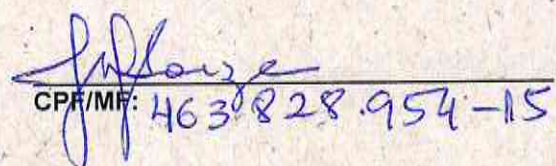 CPF/MF: 463.828.954-15